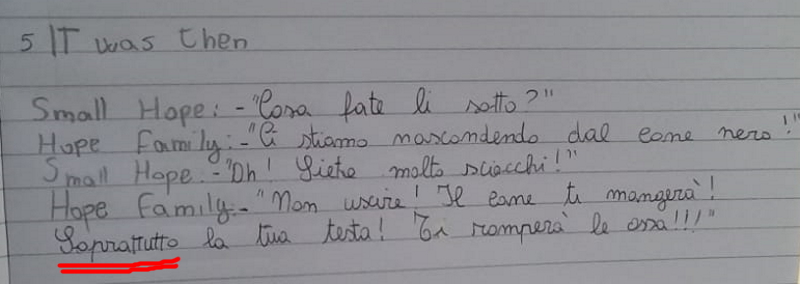 5 IT was then
Small Hope: - "Cosa fate lì sotto?"
Hope Family: - "Ci stiamo nascondendo dal cane nero!"
Small Hope - "Oh! Siete molto sciocchi!"
Hope Family - "Non uscire! Il cane ti mangerà!
Soprattutto la tua testa! Ti romperà le ossa!!!"